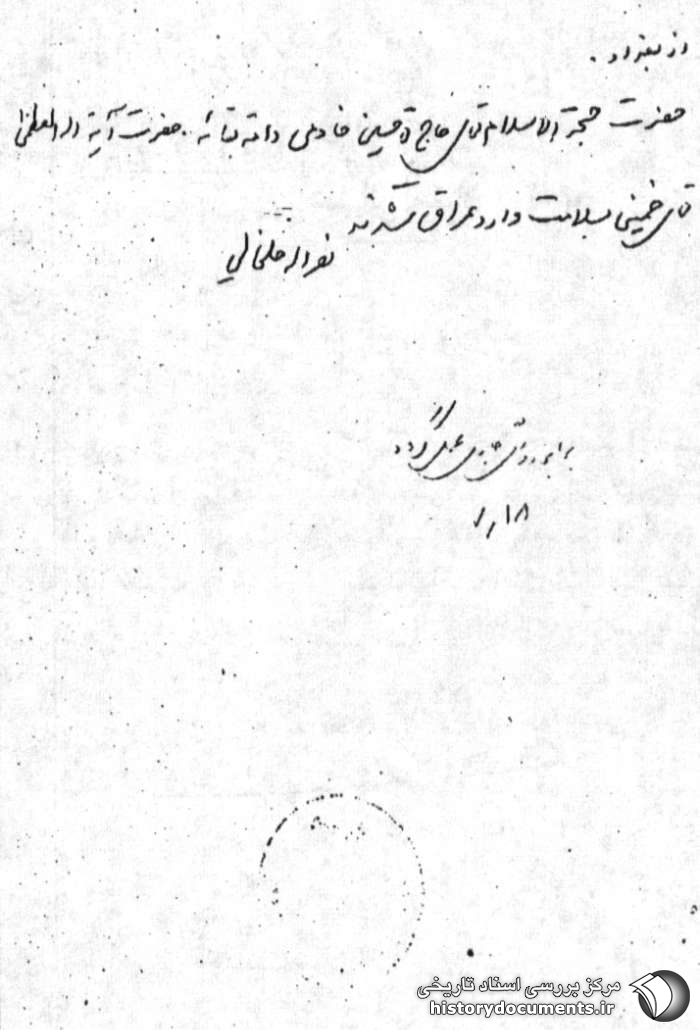 از بغداد.
حضرت حجة الاسلام آقای حاج آقا حسین خادمی دامة بقائه. حضرت آیة اله العظمی
آقای خمینی بسلامت وارد عراق شدند
نصراله خلخالی
عمل گردد
۱۸ر
مرکز بررسی اسناد تاریخی
historydocuments.ir